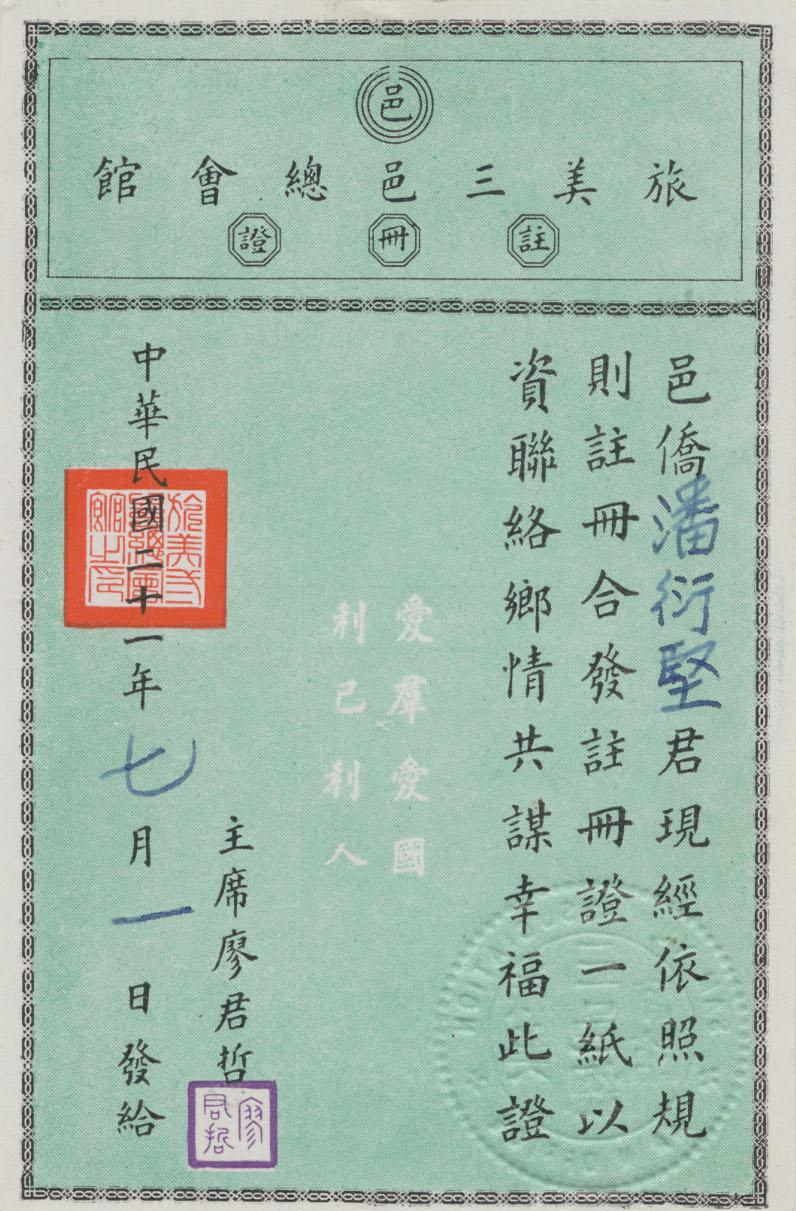 邑
旅美三邑總會館
註冊證
邑僑潘衍堅君現經依照規
則註冊合發註冊證一紙以
資聯絡鄉情共謀幸福此證
愛羣愛國
利己利人
主席廖君哲
廖君哲
中華民國二十一年七月一日發給
旅美三邑總會館之印